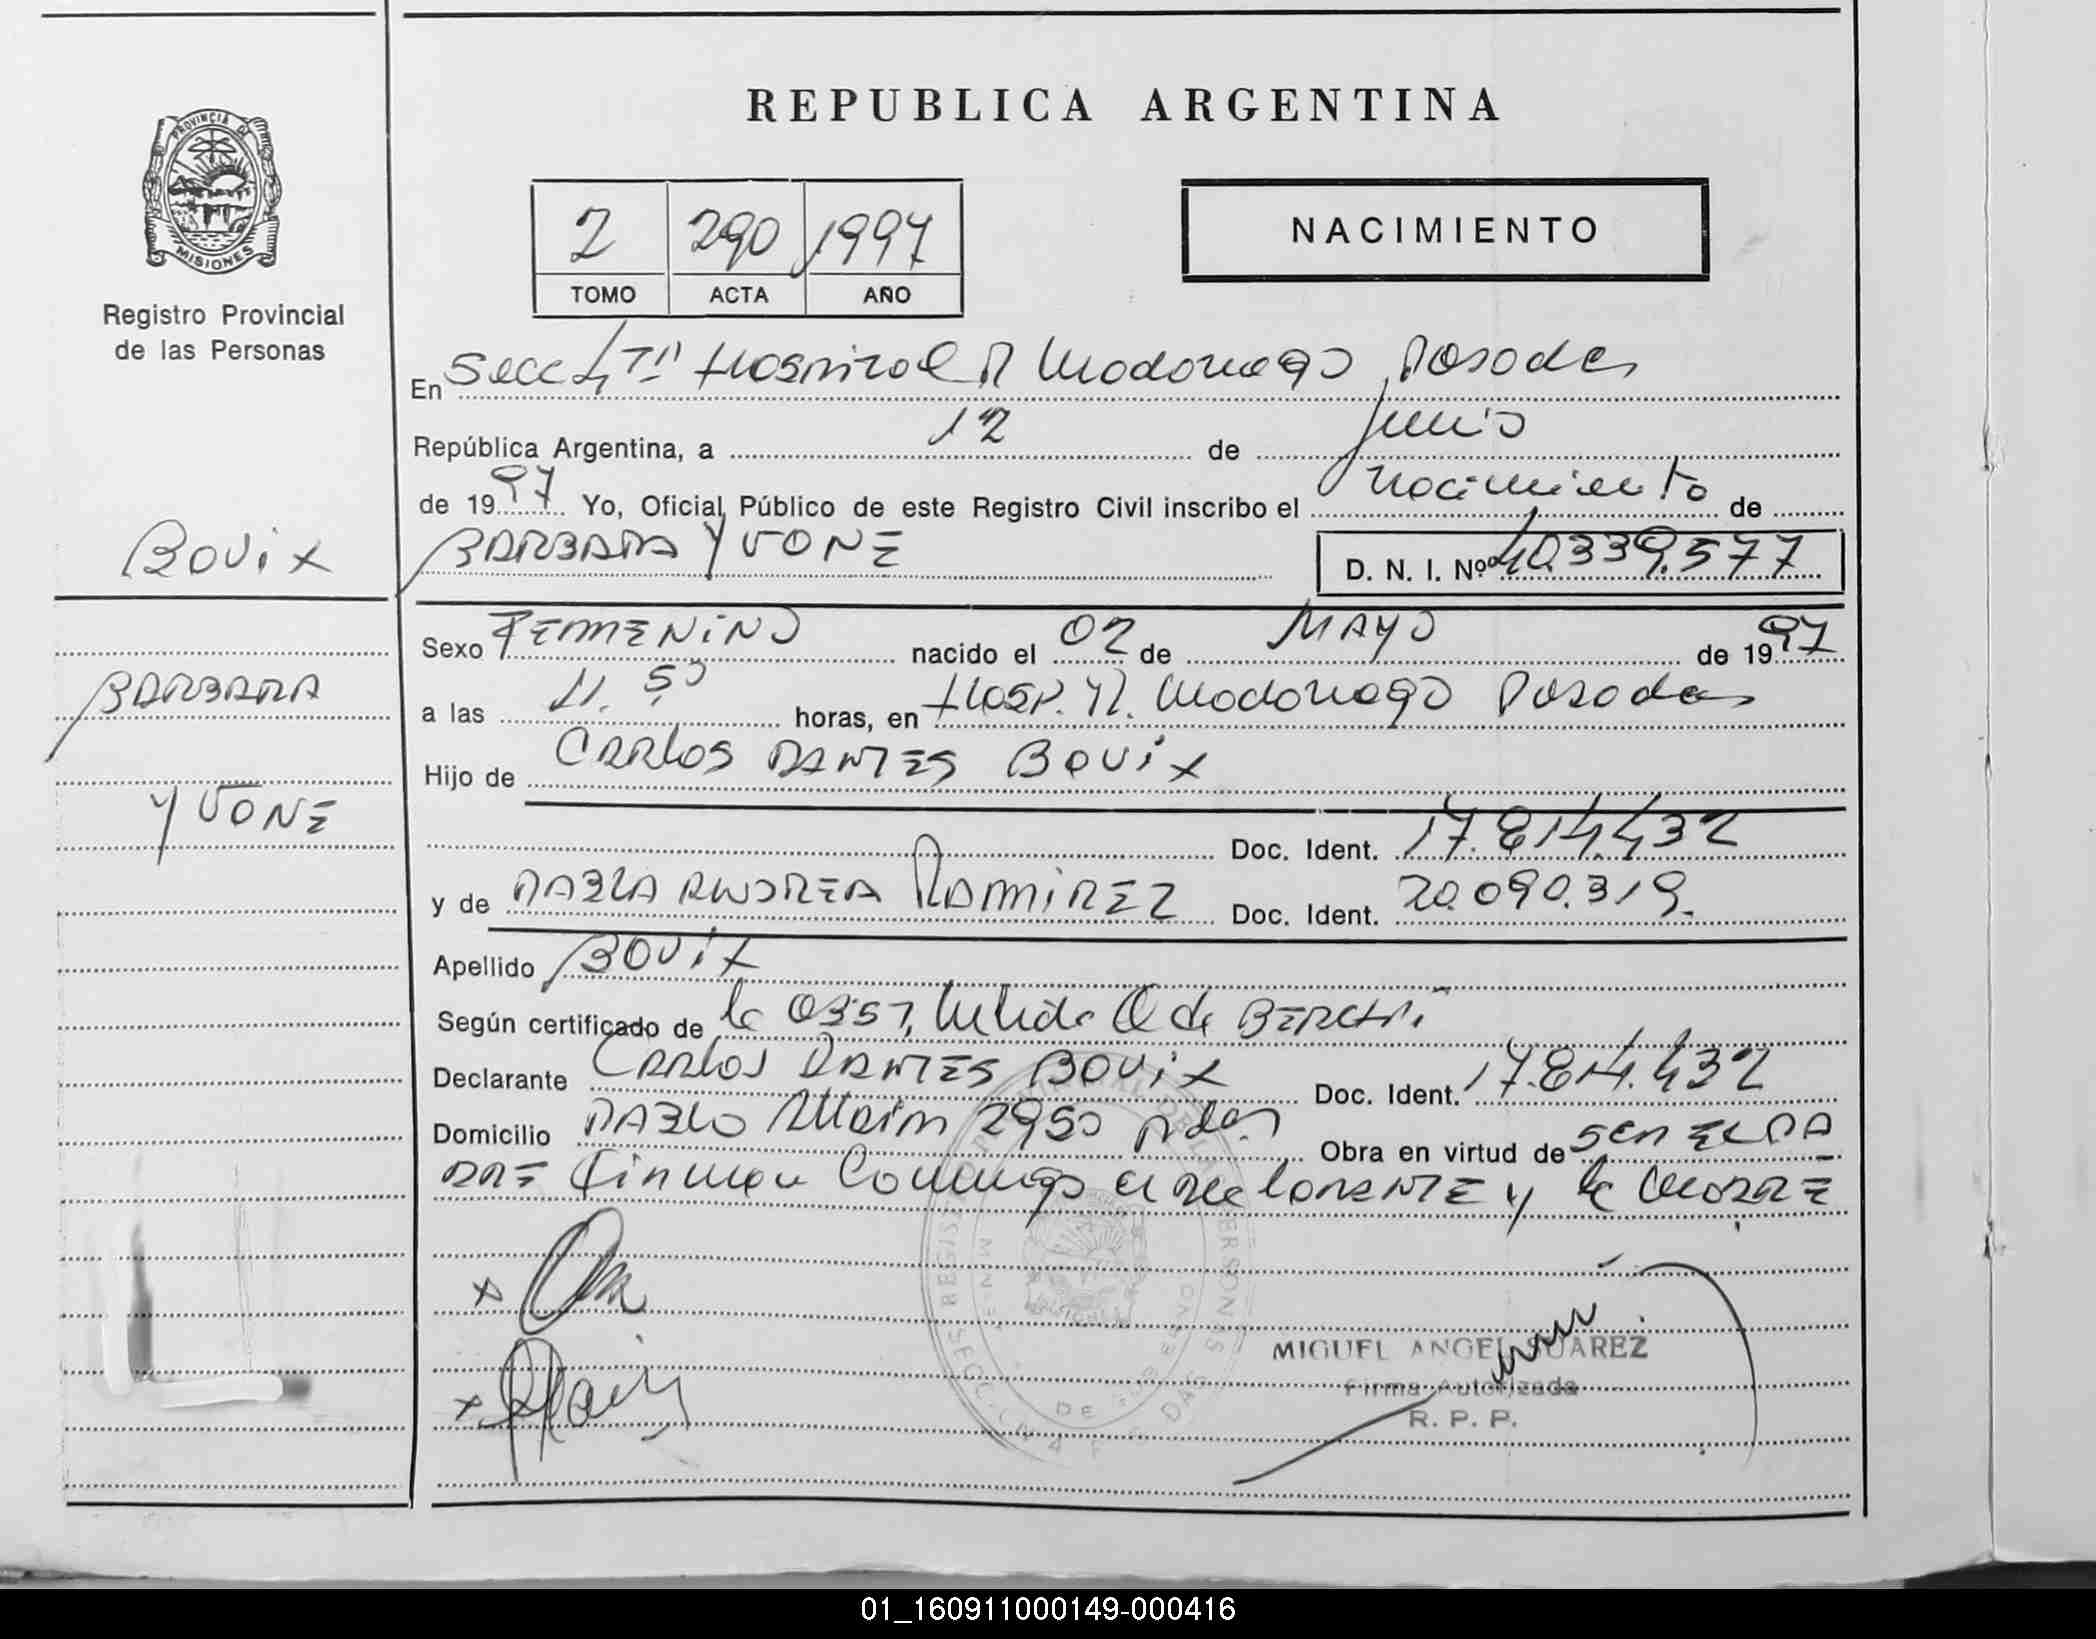 REPUBLICA ARGENTINA
PROVINCIA DE MISIONES
Registro Provincial
de las Personas
2 290 1997
TOMO ACTA AÑO
NACIMIENTO
En Secc 4ta Hospital R Madariaga Posadas
República Argentina, a 12 de Junio
de 1997 Yo, Oficial Público de este Registro Civil inscribo el nacimiento de
BOVIX
BARBARA YVONE D. N. I. Nº 40.339.577
Sexo FEMENINO nacido el 02 de MAYO de 1997
BARBARA
a las 11.50 horas, en Hosp. R. Madariaga Posadas
Hijo de CARLOS DANTES BOVIX
YVONE
Doc. Ident. 17.814.432
y de PABLA ANDREA RAMIREZ Doc. Ident. 20.090.319.
Apellido BOVIX
Según certificado de la Obst, de
Declarante CARLOS DANTES BOVIX Doc. Ident. 17.814.432
Domicilio PABLO Allain 2950 Pdas. Obra en virtud de SER EL PA
DRE Firman Conmigo el declarante y la MADRE
MIGUEL ANGEL SUAREZ
Firma Autorizada
R. P. P.
01_160911000149-000416